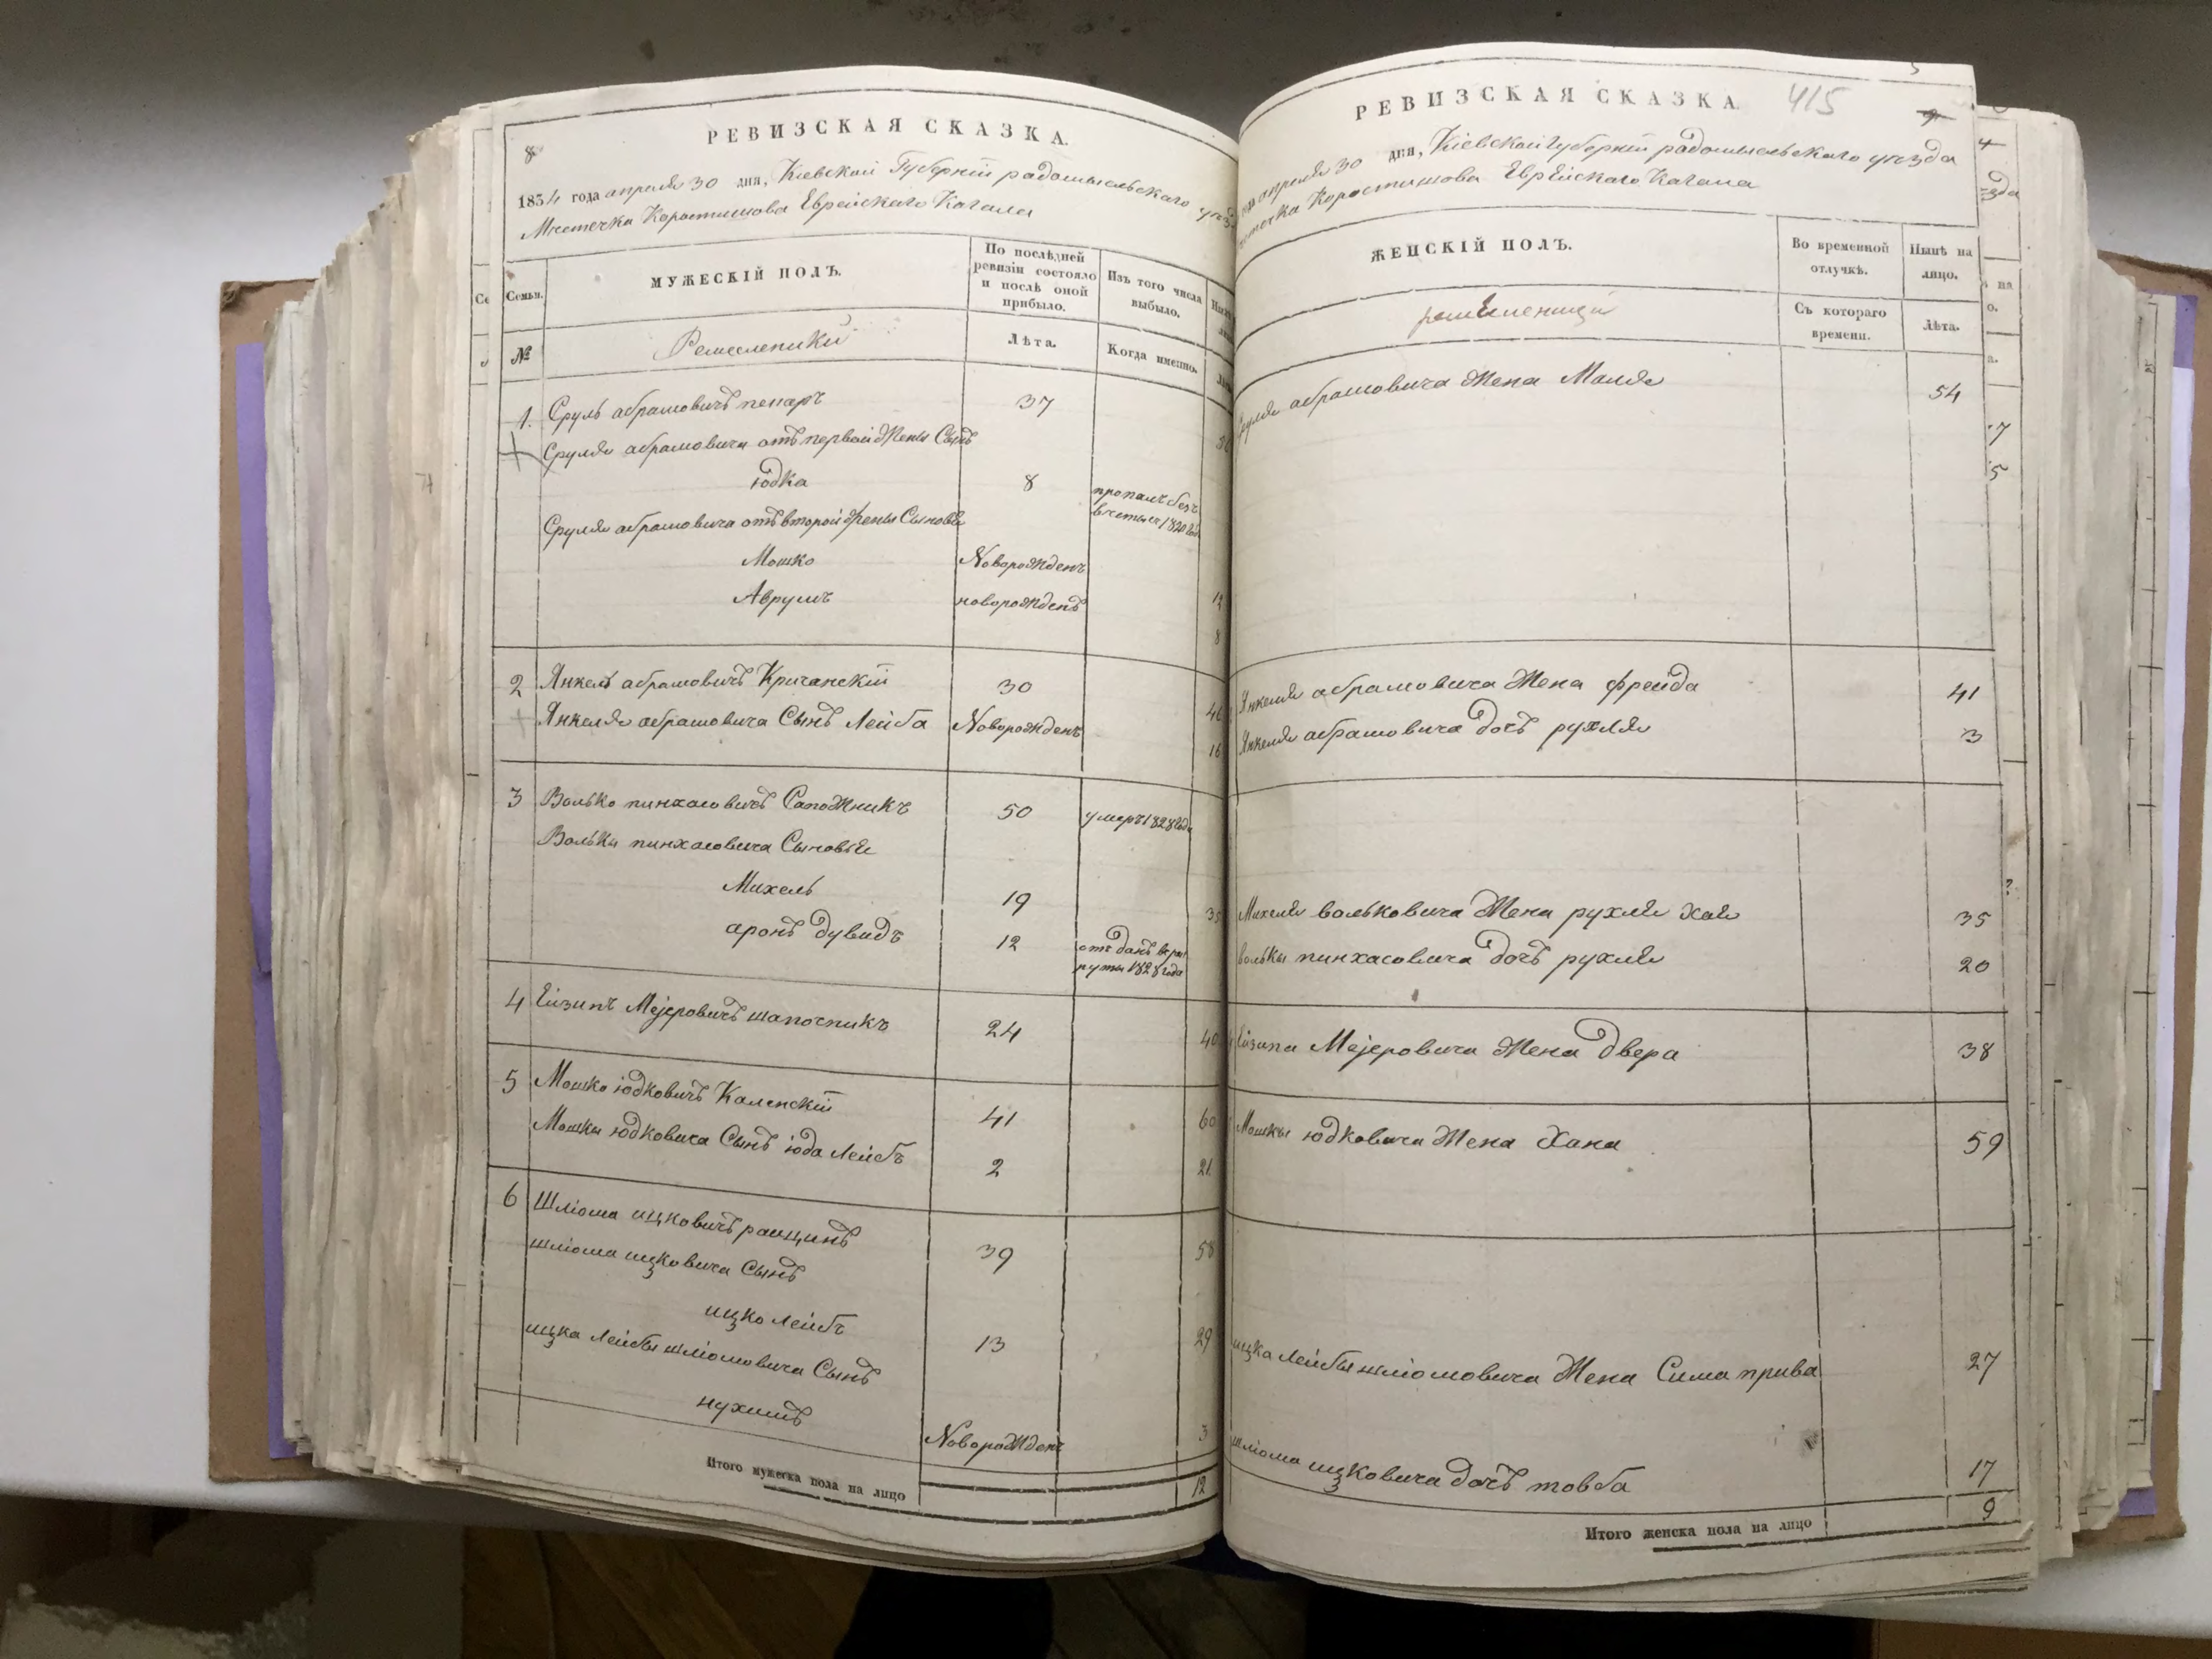 8
РЕВИЗСКАЯ СКАЗКА.
1834 года апреля 30 дня, Кіевской Губерніи радомысльского уезда
Местечка Коростишова Еврейскаго Кагала
Семьи.
МУЖЕСКІЙ ПОЛЪ.
По послѣдней ревизіи состояло и послѣ оной прибыло.
Изъ того числа выбыло.
№
Ремесленики
Лѣта.
Когда именно.
1. Сруль абрамовичъ 37
Сруля абрамовича отъ первой Жены Сынъ
юдка 8 пропалъ безъ
вести 1820 года
Сруля абрамовича отъ второй Жены Сыновья
Мошко Новорожденъ
Аврумъ новорожденъ
8
2 Янкель абрамовичъ Кричанскій 30 46
Янкеля абрамовича Сынъ Лейба Новорожденъ 16
3 Волько пинхасовичъ Сапожникъ 50 умеръ 1828 года
Вольки пинхасовича Сыновья
Михель 19 35
аронъ дувидъ 12 отъданъ в рек
руты 1828 года
4 Ейзипъ Меjеровичъ шапочникъ 24 40
5 Мошко юдковичъ Каленскій 41 60
Мошки юдковича Сынъ юда Лейбъ 2 21
6 Шліома ицковичъ ращинъ 39 58
шліома ицковича Сынъ
ицко Лейбъ 13 29
ицка Лейбы шліомовича Сынъ
нухимъ Новорожденъ 3
Итого мужеска пола на лицо 12
РЕВИЗСКАЯ СКАЗКА. 415
апреля 30 дня, Кіевской Губерніи радомысльскаго уезда
Коростишова Еврейскаго Кагала
ЖЕНСКІЙ ПОЛЪ.
Во временной отлучкѣ.
Нынѣ на лицо.
Съ котораго времени.
Лѣта.
абрамовича Жена Маля 54
Янкеля абрамовича Жена фрейда 41
Янкеля абрамовича дочь рухля 3
Михеля вольковича Жена рухля хая 35
вольки пинхасовича дочь рухля 20
Ейзипа Меjеровича Жена двера 38
Мошки юдковича Жена Хана 59
ицка Лейбы шліомовича Жена Сима прива 27
шліома ицковича дочь товба 17
Итого женска пола на лицо 9